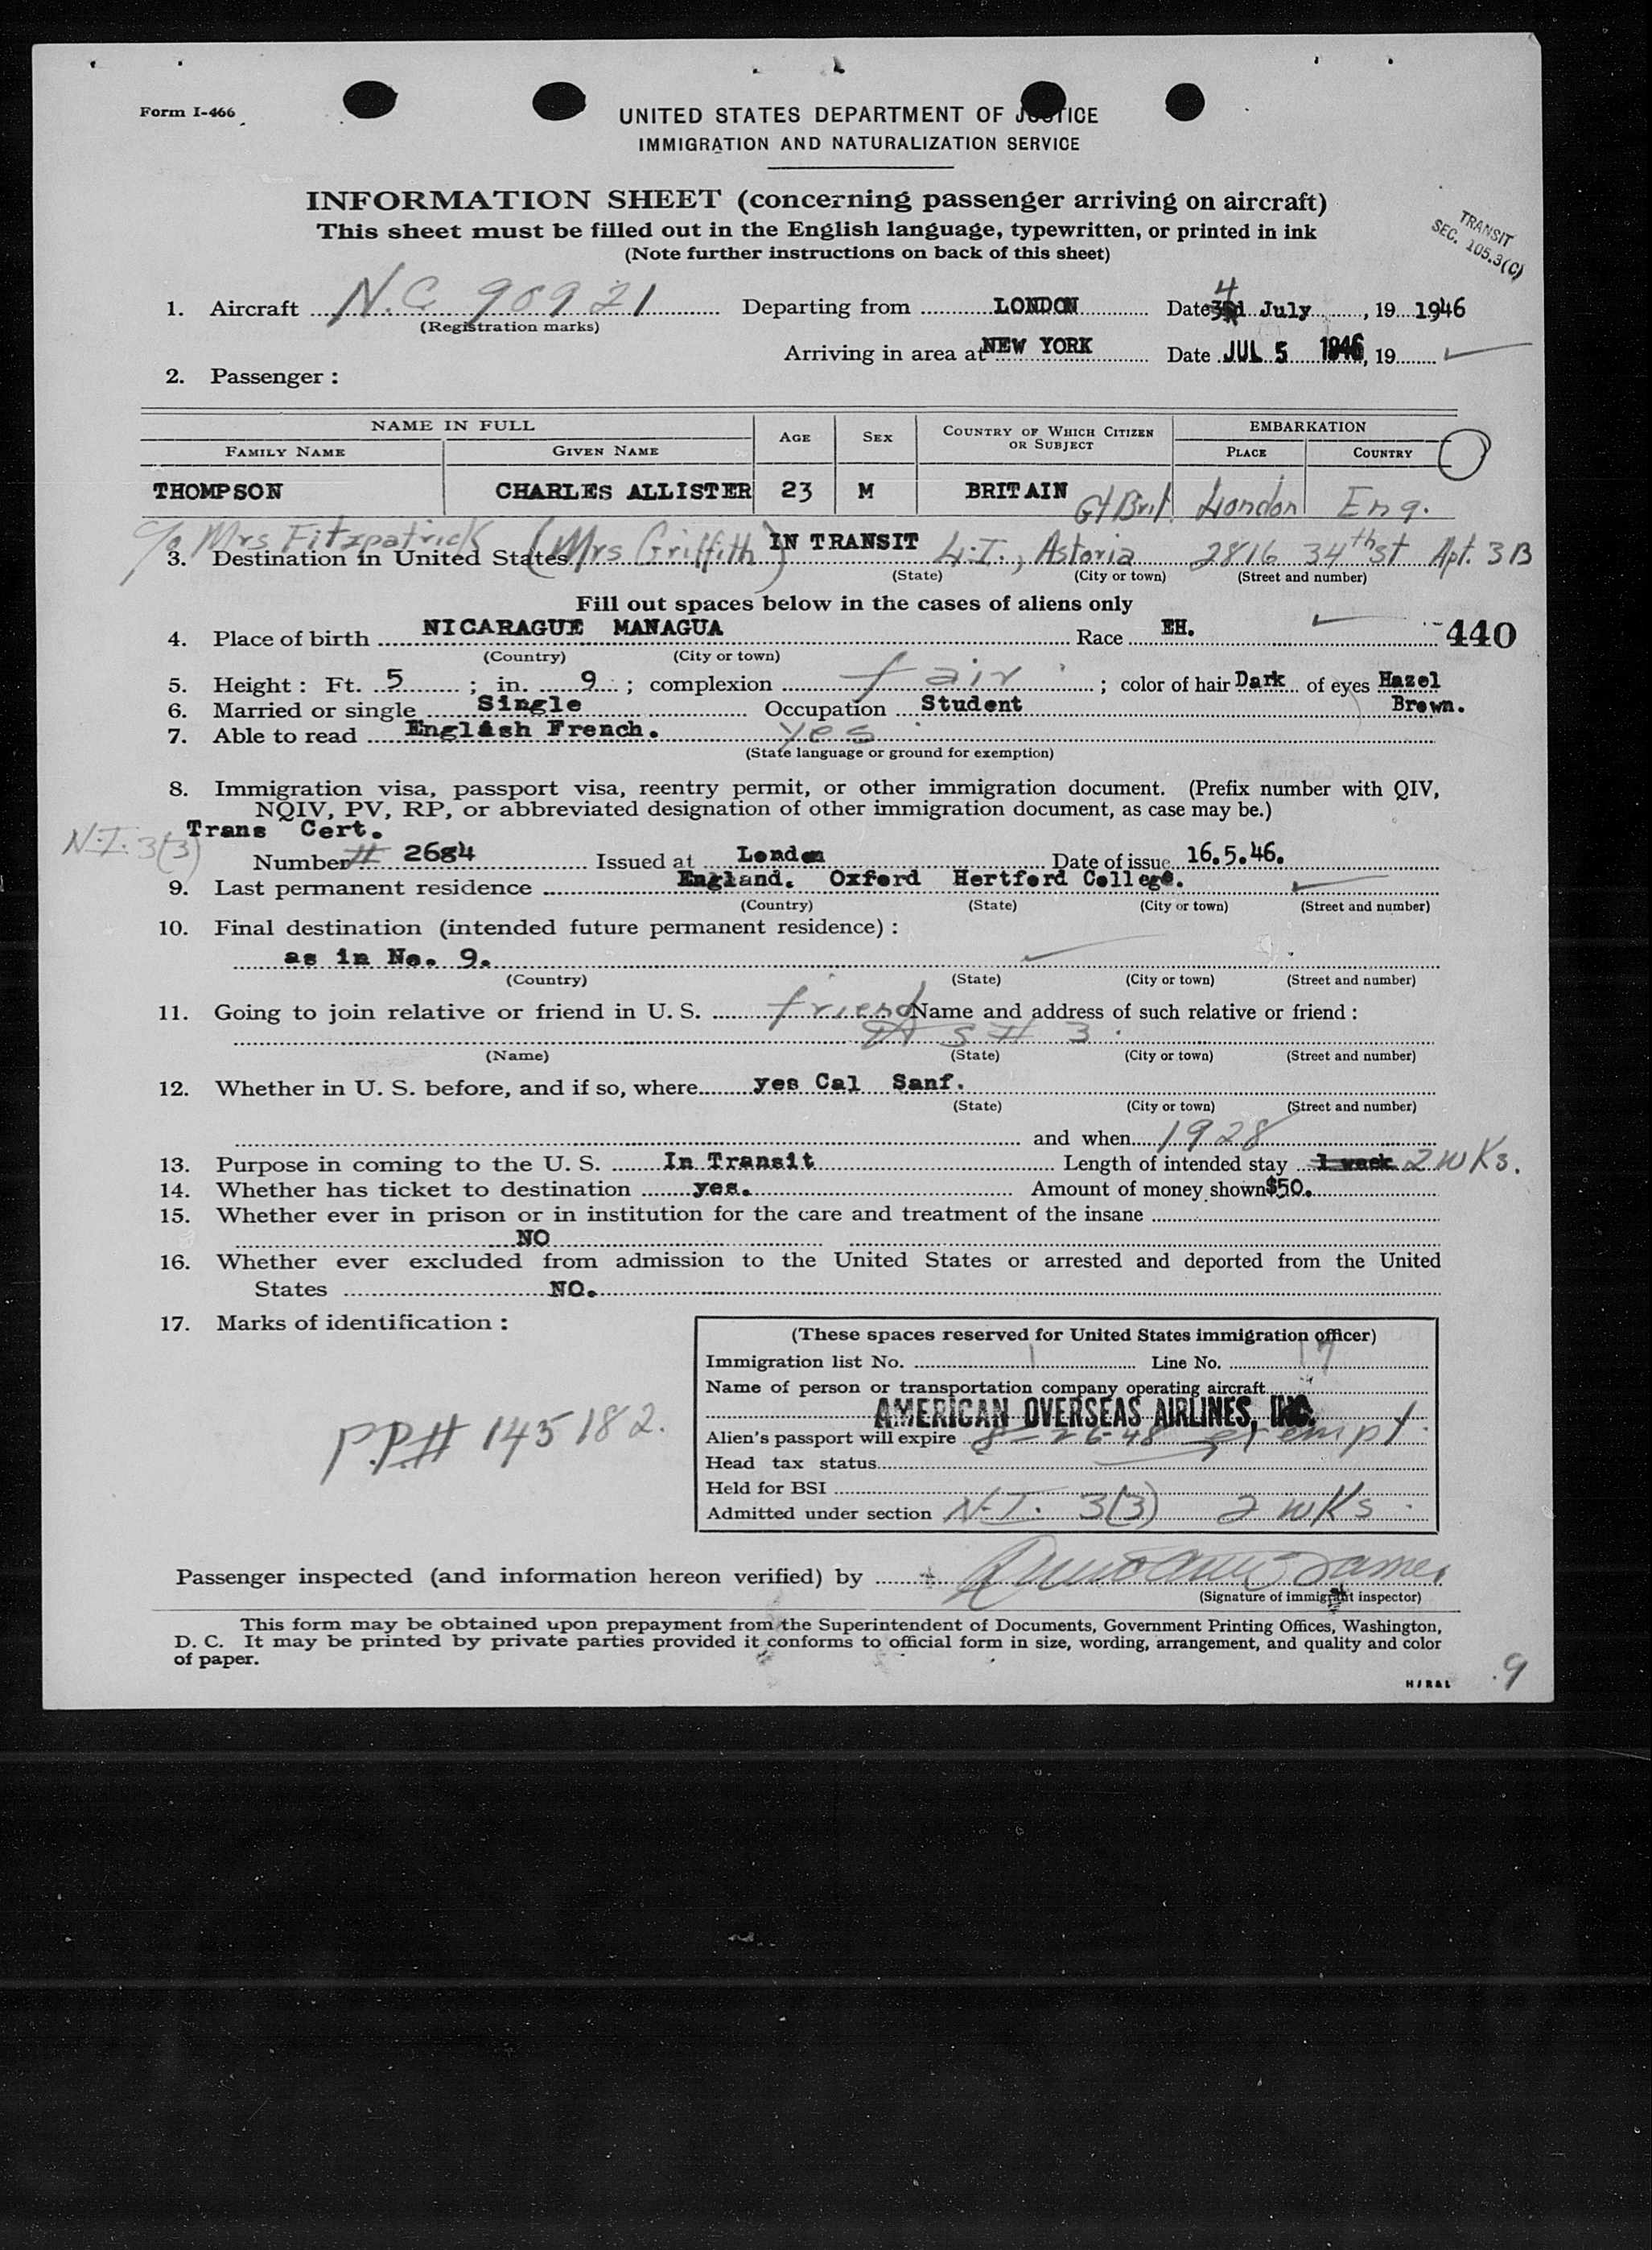 Form I-466
UNITED STATES DEPARTMENT OF JUSTICE
IMMIGRATION AND NATURALIZATION SERVICE
INFORMATION SHEET (concerning passenger arriving on aircraft)
This sheet must be filled out in the English language, typewritten, or printed in ink
(Note further instructions on back of this sheet)
TRANSIT
SEC. 105.3(C)
1. Aircraft N.C. 90921 Departing from LONDON Date 3rd 4 July, 19 1946
(Registration marks)
Arriving in area at NEW YORK Date JUL 5 1946, 19
2. Passenger :
NAME IN FULL AGE SEX COUNTRY OF WHICH CITIZEN OR SUBJECT EMBARKATION
FAMILY NAME GIVEN NAME PLACE COUNTRY
THOMPSON CHARLES ALLISTER 23 M BRITAIN Gt Brit. London Eng.
c/o Mrs Fitzpatrick (Mrs Griffith)
3. Destination in United States IN TRANSIT L.I., Astoria 2816 34th st Apt. 3B
(State) (City or town) (Street and number)
Fill out spaces below in the cases of aliens only
4. Place of birth NICARAGUE MANAGUA Race EH. 440
(Country) (City or town)
5. Height : Ft. 5 ; in. 9 ; complexion fair ; color of hair Dark of eyes Hazel
6. Married or single Single Occupation Student Brown.
7. Able to read English French. yes
(State language or ground for exemption)
8. Immigration visa, passport visa, reentry permit, or other immigration document. (Prefix number with QIV,
NQIV, PV, RP, or abbreviated designation of other immigration document, as case may be.)
N.I. 3(3) Trans Cert.
Number # 2684 Issued at London Date of issue 16.5.46.
9. Last permanent residence England. Oxford Hertford College.
(Country) (State) (City or town) (Street and number)
10. Final destination (intended future permanent residence) :
as in No. 9.
(Country) (State) (City or town) (Street and number)
11. Going to join relative or friend in U. S. friend Name and address of such relative or friend :
AS # 3
(Name) (State) (City or town) (Street and number)
12. Whether in U. S. before, and if so, where yes Cal Sanf.
(State) (City or town) (Street and number)
and when 1928
13. Purpose in coming to the U. S. In Transit Length of intended stay 1 week 2 wKs.
14. Whether has ticket to destination yes. Amount of money shown $50.
15. Whether ever in prison or in institution for the care and treatment of the insane
NO
16. Whether ever excluded from admission to the United States or arrested and deported from the United
States NO.
17. Marks of identification :
P.P.# 145182.
(These spaces reserved for United States immigration officer)
Immigration list No. 1 Line No. 17
Name of person or transportation company operating aircraft
AMERICAN OVERSEAS AIRLINES, INC.
Alien's passport will expire 8-26-48 exempt
Head tax status
Held for BSI
Admitted under section N.I. 3(3) 2 wKs
Passenger inspected (and information hereon verified) by
(Signature of immigrant inspector)
This form may be obtained upon prepayment from the Superintendent of Documents, Government Printing Offices, Washington,
D. C. It may be printed by private parties provided it conforms to official form in size, wording, arrangement, and quality and color
of paper.
H/R&L
9